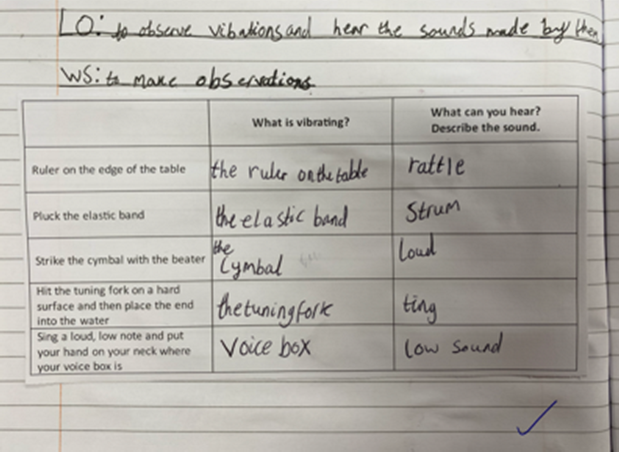 LO: to observe vibrations and hear the sounds made by them
WS: to make observations
What is vibrating?
What can you hear?
Describe the sound.
Ruler on the edge of the table
the ruler on the table
rattle
Pluck the elastic band
the elastic band
Strum
Strike the cymbal with the beater
the
Cymbal
loud
Hit the tuning fork on a hard
surface and then place the end
into the water
the tuning fork
ting
Sing a loud, low note and put
your hand on your neck where
your voice box is
Voice box
low sound